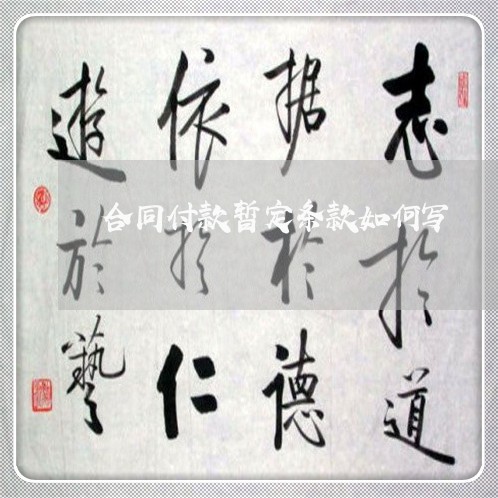 志於道
据於德
依於仁
遊於藝
合同付款暂定条款如何写